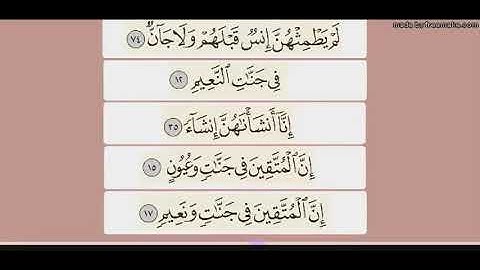 made by freemake.com
لَمْ يَطْمِثْهُنَّ إِنسٌ قَبْلَهُمْ وَلَا جَانٌّ ٧٤
فِي جَنَّاتِ النَّعِيمِ ١٢
إِنَّا أَنشَأْنَاهُنَّ إِنشَاءً ٣٥
إِنَّ الْمُتَّقِينَ فِي جَنَّاتٍ وَعُيُونٍ ١٥
إِنَّ الْمُتَّقِينَ فِي جَنَّاتٍ وَنَعِيمٍ ١٧